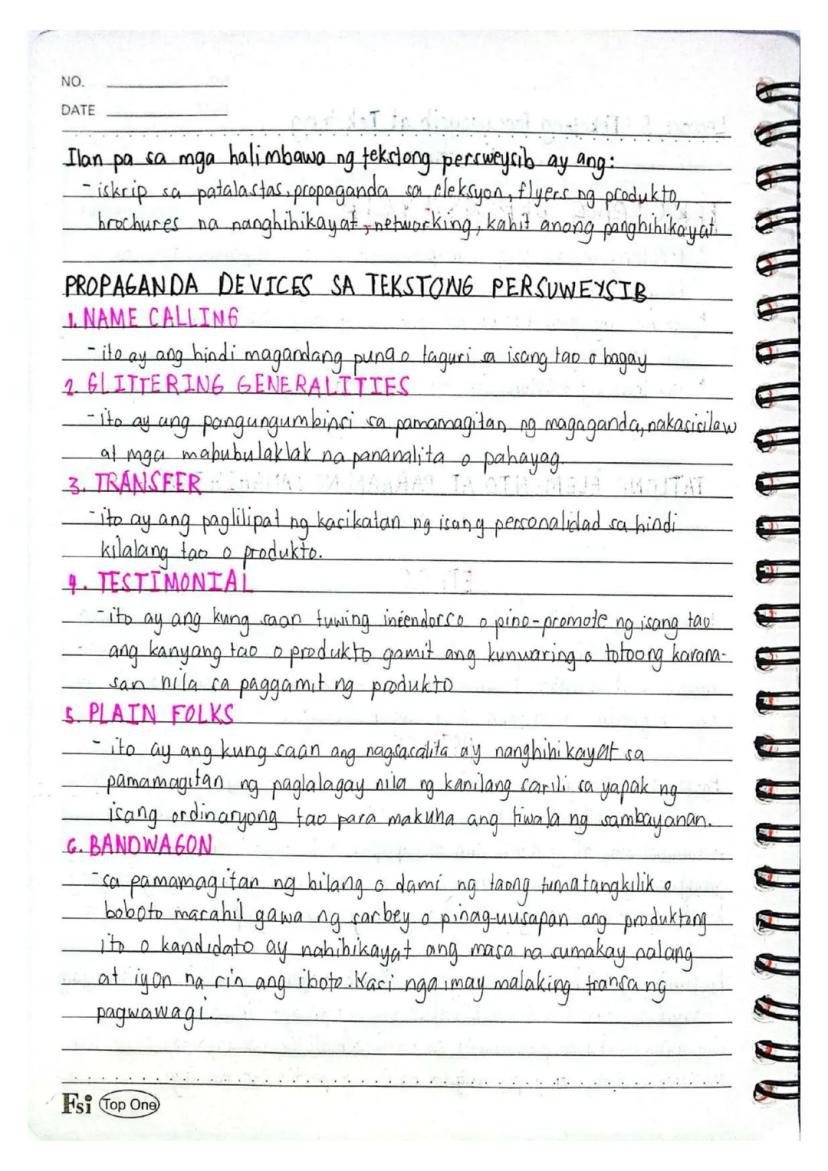 NO.
DATE
Ilan pa sa mga halimbawa ng tekstong persweysib ay ang:
- iskrip sa patalastas, propaganda sa eleksyon, flyers ng produkto,
brochures na nanghihikayat, networking, kahit anong panghihikayat
PROPAGANDA DEVICES SA TEKSTONG PERSUWEYSIB
1. NAME CALLING
- ito ay ang hindi magandang puna o taguri sa isang tao o bagay
2. GLITTERING GENERALITIES
- ito ay ang pangungumbinsi sa pamamagitan ng magaganda, nakasisilaw
at mga mabubulaklak na pananalita o pahayag.
3. TRANSFER
- ito ay ang paglilipat ng kasikatan ng isang personalidad sa hindi
kilalang tao o produkto.
4. TESTIMONIAL
- ito ay ang kung saan tuwing ineendorso o pino-promote ng isang tao
ang kanyang tao o produkto gamit ang kunwaring o totoong karana-
san nila sa paggamit ng produkto
5. PLAIN FOLKS
- ito ay ang kung saan ang nagsasalita ay nanghihikayat sa
pamamagitan ng paglalagay nila ng kanilang sarili sa yapak ng
isang ordinaryong tao para makuha ang tiwala ng sambayanan.
6. BANDWAGON
- sa pamamagitan ng bilang o dami ng taong tumatangkilik o
boboto marahil gawa ng sarbey o pinag-uusapan ang produktong
ito o kandidato ay nahihikayat ang masa na sumakay nalang
at iyon na rin ang iboto. Kasi nga may malaking tyansa ng
pagwawagi.
Fsi Top One